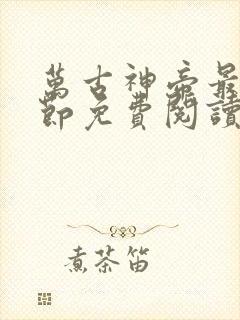 萬古神帝最
節免費閱讀
煮茶笛